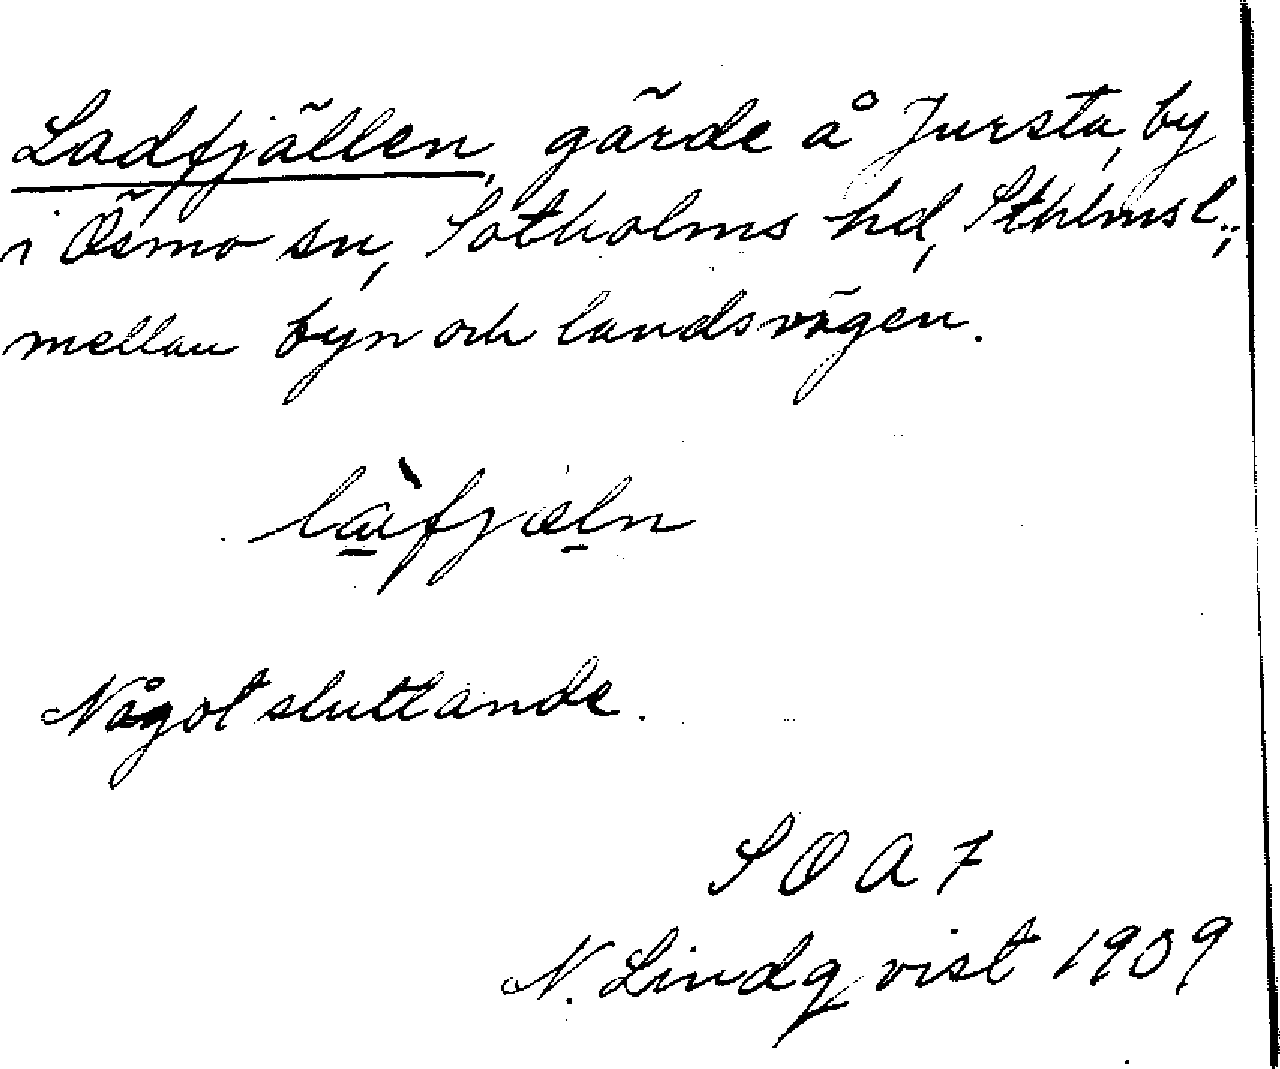 Ladfjällen, gärde å Jursta, by
i Ösmo sn, Sotholms hd, Sthlms l.;
mellan byn och landsvägen.
Något sluttande.
S O A F
N. Lindqvist 1909